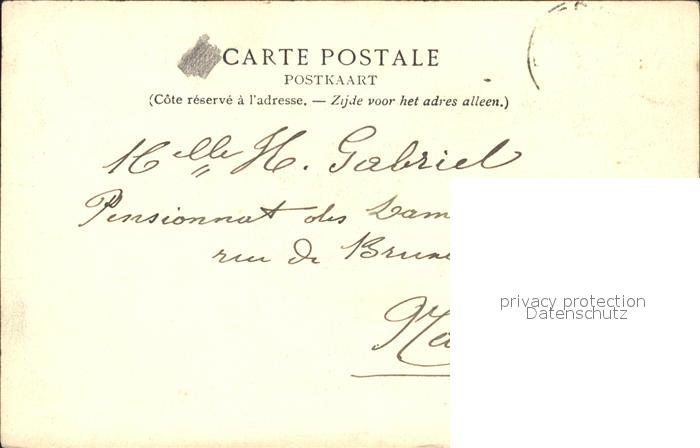 CARTE POSTALE
POSTKAART
(Côte réservé à l'adresse. — Zijde voor het adres alleen.)
Melle H. Gabriel
Pensionnat des Dam
rue de Brux
Na
privacy protection
Datenschutz